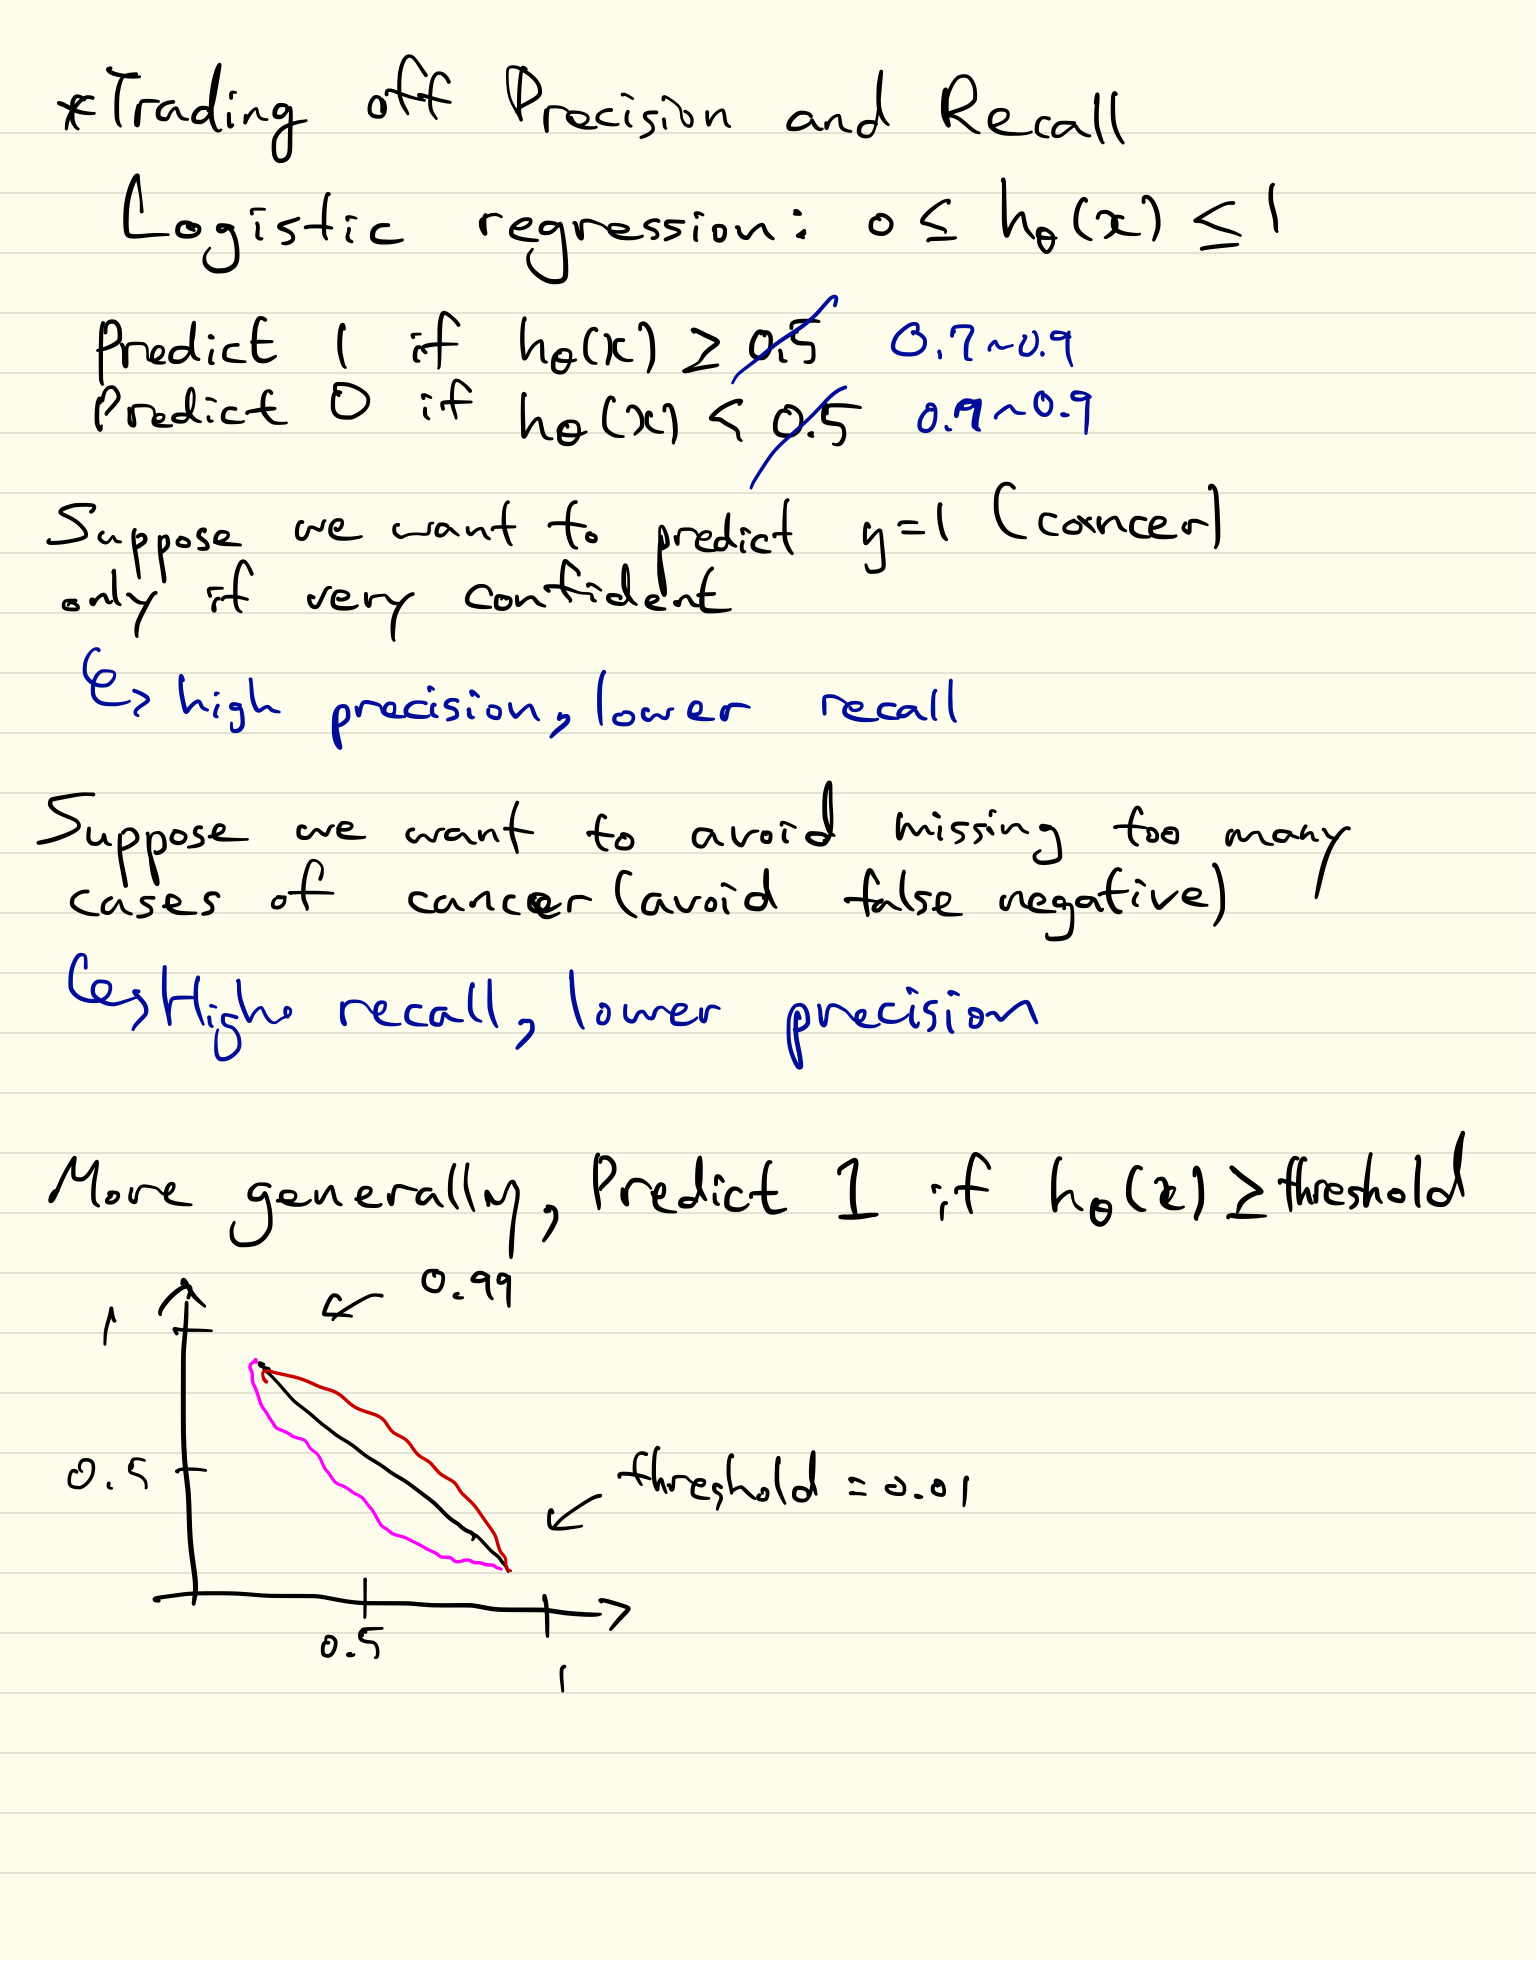 *Trading off Precision and Recall
Logistic regression: 0 ≤ hθ(x) ≤ 1
Predict 1 if hθ(x) ≥ 0.5 0.7~0.9
Predict 0 if hθ(x) < 0.5 0.9~0.9
Suppose we want to predict y=1 (cancer)
only if very confident
↳ high precision, lower recall
Suppose we want to avoid missing too many
cases of cancer (avoid false negative)
↳ High recall, lower precision
More generally, Predict 1 if hθ(x) ≥ threshold
0.99
1
0.5
threshold = 0.01
0.5
1